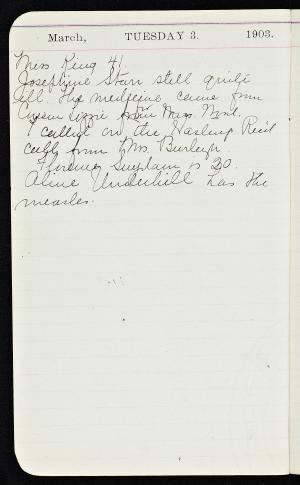 March, TUESDAY 3. 1903.
Miss King 41
Josephine Starr still quite
ill. The medicine came from
Lizzie from Miss
I called on the Harlens. Rec'd
calls from Mrs. Burleigh.
Florence is 20.
Aline Underhill has the
measles.